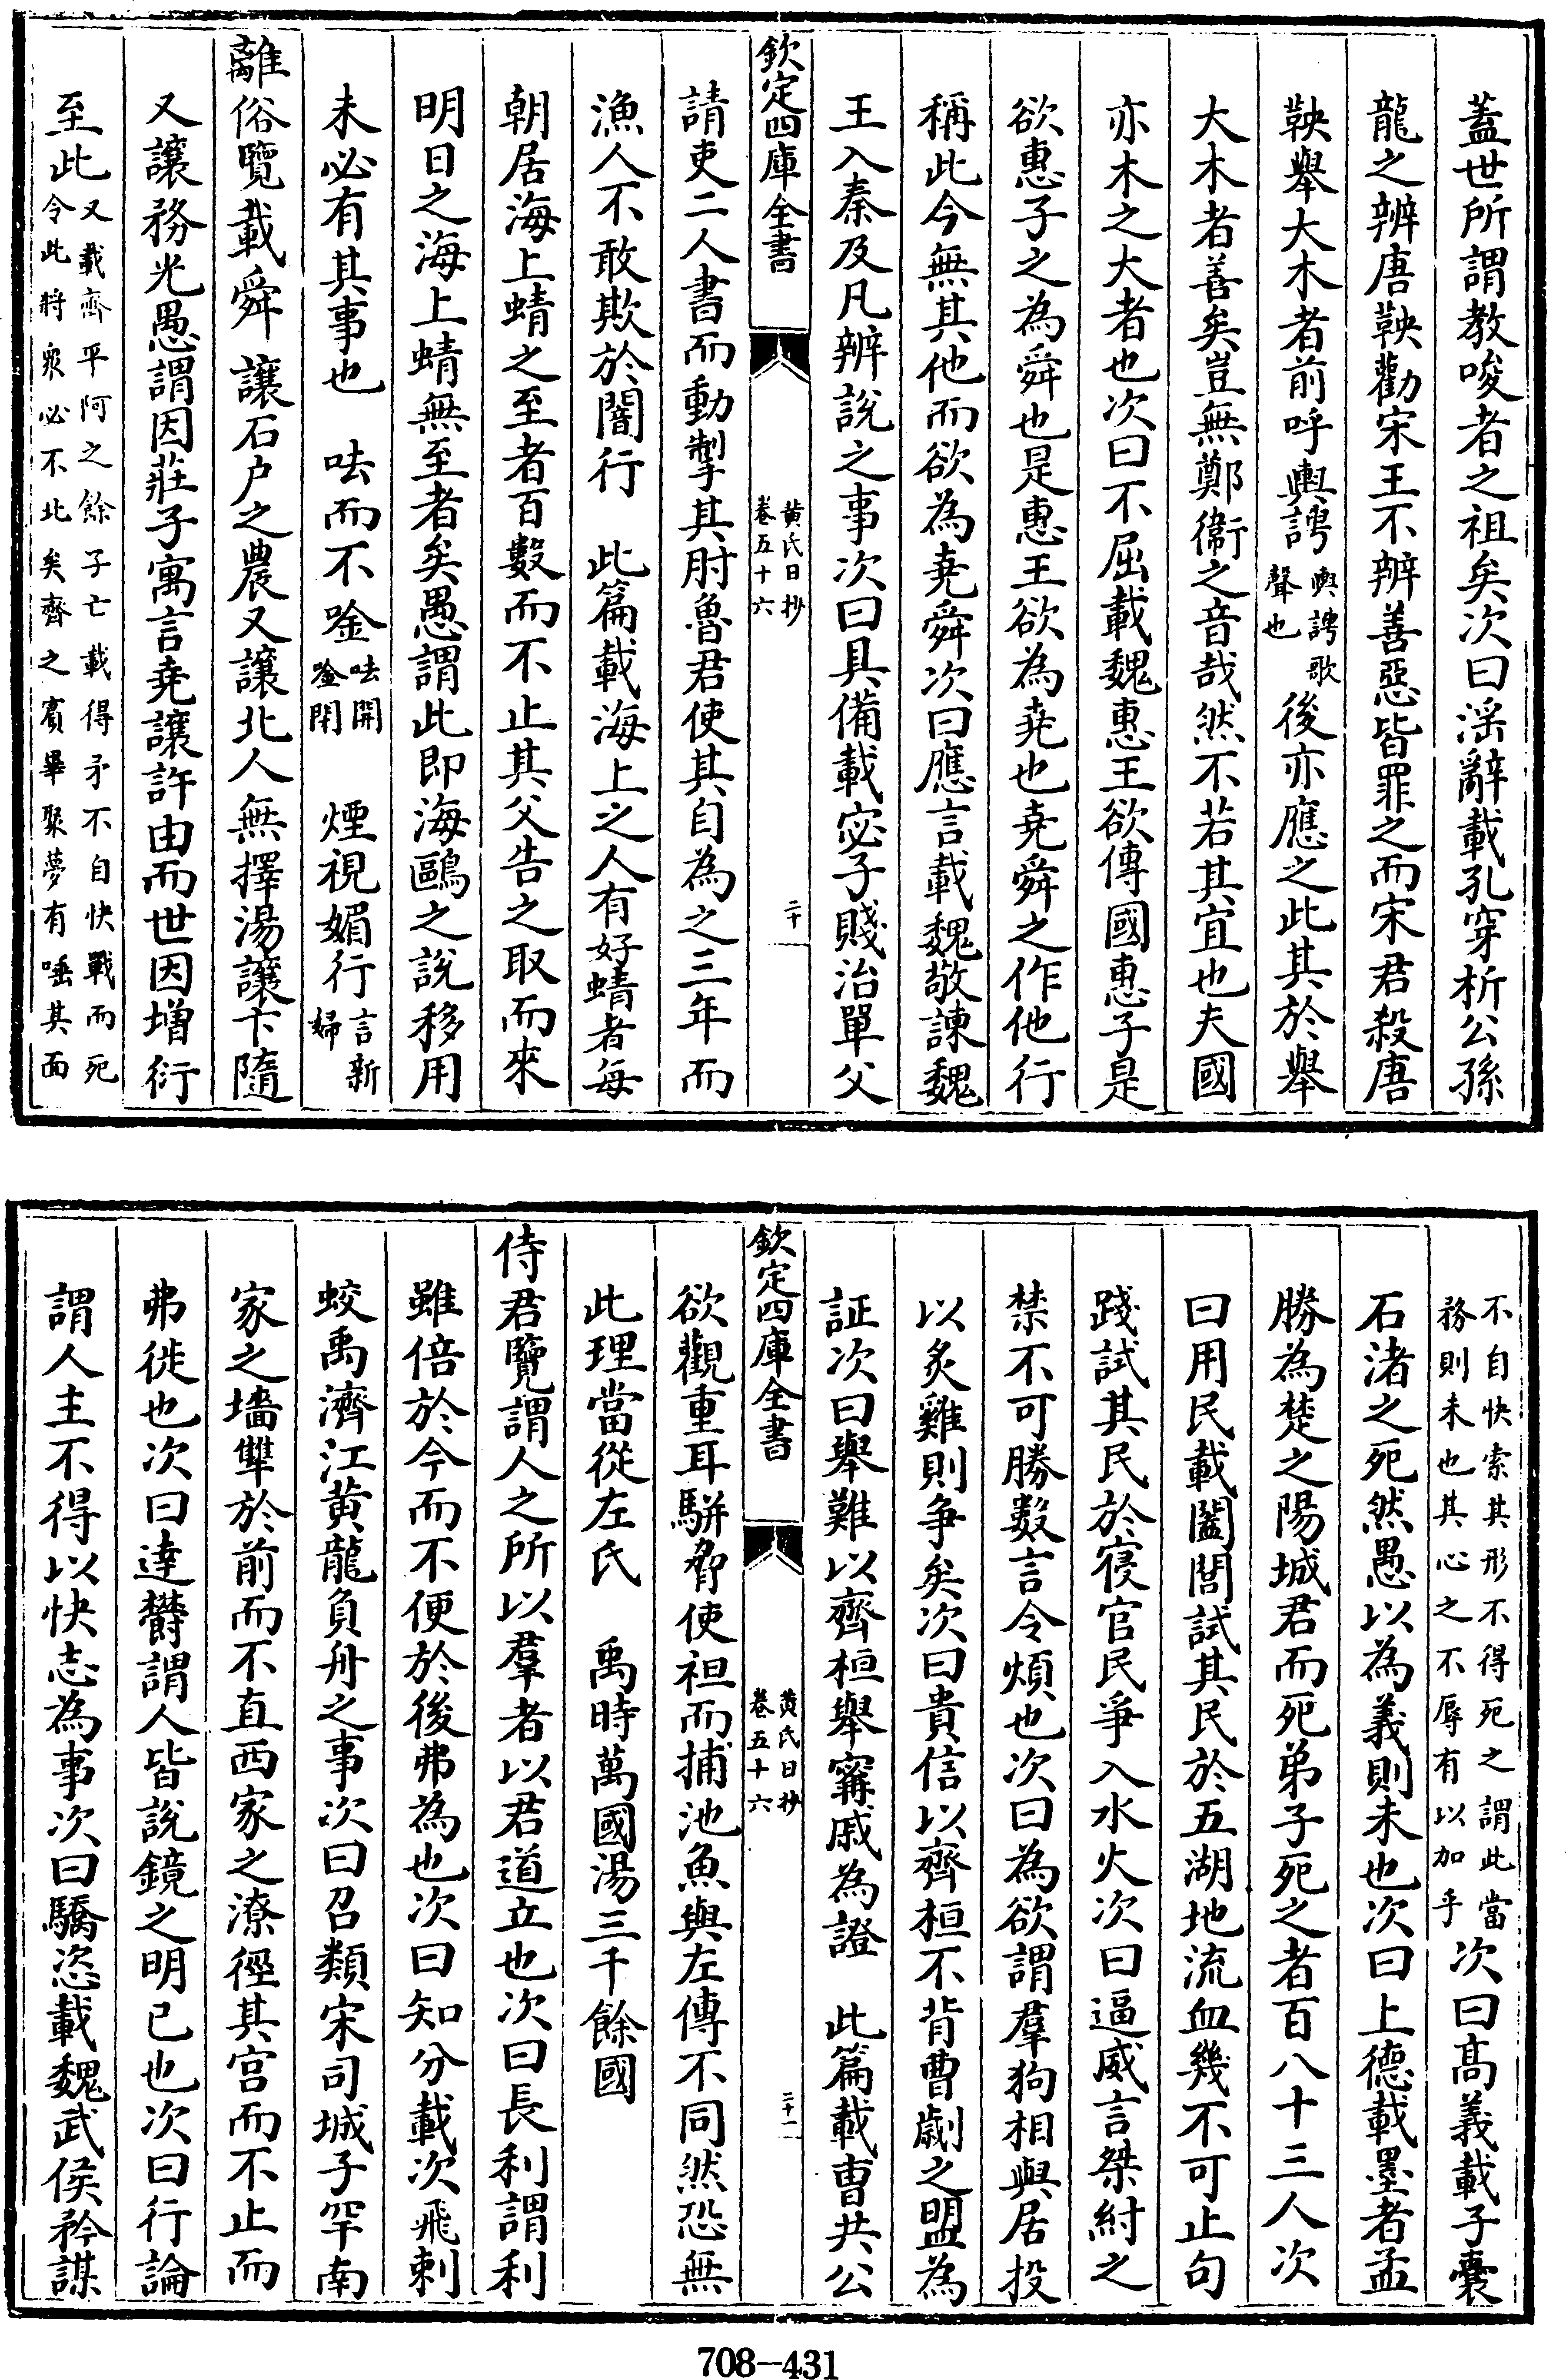 蓋世所謂教唆者之祖矣次曰淫辭載孔穿析公孫
龍之辨唐鞅勸宋王不辨善惡皆罪之而宋君殺唐
鞅舉大木者前呼輿謣輿謣歌聲也後亦應之此其於舉
大木者善矣豈無鄭衞之音哉然不若其宜也夫國
亦木之大者也次曰不屈載魏惠王欲傳國惠子是
欲惠子之為舜也是惠王欲為堯也堯舜之作他行
稱此今無其他而欲為堯舜次曰應言載魏敬諫魏
王入秦及凡辨說之事次曰具備載宓子賤治單父
欽定四庫全書
黃氏日抄
卷五十六
二十
請吏二人書而動掣其肘魯君使其自為之三年而
漁人不敢欺於闇行　此篇載海上之人有好蜻者每
朝居海上蜻之至者百數而不止其父告之取而來
明日之海上蜻無至者矣愚謂此即海鷗之說移用
未必有其事也　呿而不唫呿開唫閉　煙視媚行言新婦
離俗覽載舜讓石户之農又讓北人無擇湯讓卞隨
又讓務光愚謂因莊子寓言堯讓許由而世因增衍
至此又載齊平阿之餘子亡戟得矛不自快戰而死
令此將衆必不北矣齊之賓畢聚夢有唾其面
不自快索其形不得死之謂此當
務則未也其心之不辱有以加乎次曰高義載子囊
石渚之死然愚以為義則未也次曰上德載墨者孟
勝為楚之陽城君而死弟子死之者百八十三人次
曰用民載闔閭試其民於五湖地流血幾不可止句
踐試其民於寑官民爭入水火次曰逼威言桀紂之
禁不可勝數言令煩也次曰為欲謂羣狗相與居投
以炙雞則爭矣次曰貴信以齊桓不背曹劌之盟為
証次曰舉難以齊桓舉甯戚為證　此篇載曹共公
欽定四庫全書
黃氏日抄
卷五十六
二十一
欲觀重耳駢脅使袒而捕池魚與左傳不同然恐無
此理當從左氏　禹時萬國湯三千餘國
侍君覽謂人之所以羣者以君道立也次曰長利謂利
雖倍於今而不便於後弗為也次曰知分載次飛刺
蛟禹濟江黄龍負舟之事次曰召類宋司城子罕南
家之墻犨於前而不直西家之潦徑其宫而不止而
弗徙也次曰達鬱謂人皆說鏡之明已也次曰行論
謂人主不得以快志為事次曰驕恣載魏武侯矜謀
708-431